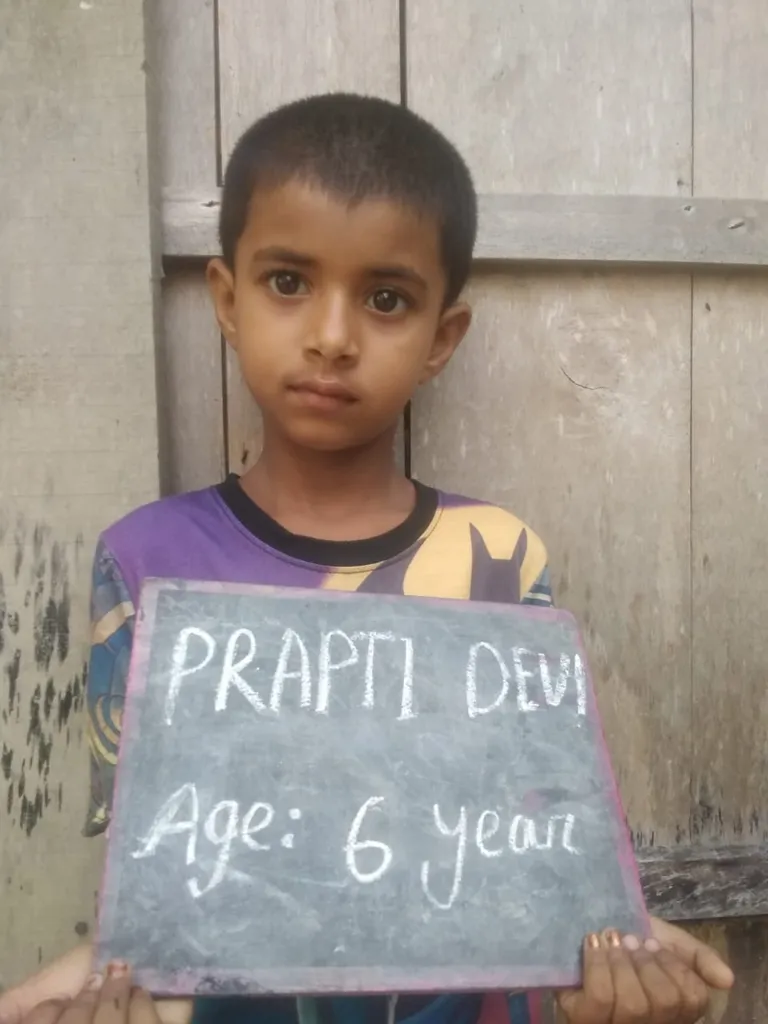 PRAPTI DEVI
Age: 6 year